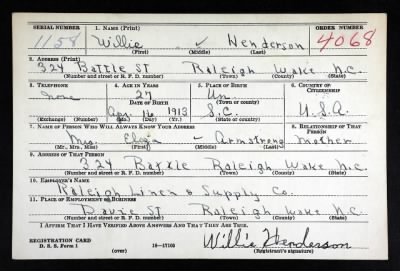 SERIAL NUMBER 1. NAME (Print) ORDER NUMBER
1158 Willie ✓ Henderson 4068
(First) (Middle) (Last)
2. ADDRESS (Print)
324 Battle St Raleigh Wake N.C.
(Number and street or R. F. D. number) (Town) (County) (State)
3. TELEPHONE 4. AGE IN YEARS 5. PLACE OF BIRTH 6. COUNTRY OF CITIZENSHIP
none 27 Un
DATE OF BIRTH
Apr. 16 1913 S.C. U.S.A.
(Exchange) (Number) (Mo.) (Day) (Yr.) (State or country)
7. NAME OF PERSON WHO WILL ALWAYS KNOW YOUR ADDRESS 8. RELATIONSHIP OF THAT PERSON
Mrs. Eliza – Armstrong Mother
(Mr., Mrs., Miss) (First) (Middle) (Last)
9. ADDRESS OF THAT PERSON
324 Battle Raleigh Wake N.C.
(Number and street or R. F. D. number) (Town) (County) (State)
10. EMPLOYER'S NAME
Raleigh Linen & Supply Co.
11. PLACE OF EMPLOYMENT OR BUSINESS
Davie St Raleigh Wake N.C.
(Number and street or R. F. D. number) (Town) (County) (State)
I AFFIRM THAT I HAVE VERIFIED ABOVE ANSWERS AND THAT THEY ARE TRUE.
REGISTRATION CARD
D. S. S. Form 1 (over) 16—17105 Willie Henderson
(Registrant's signature)